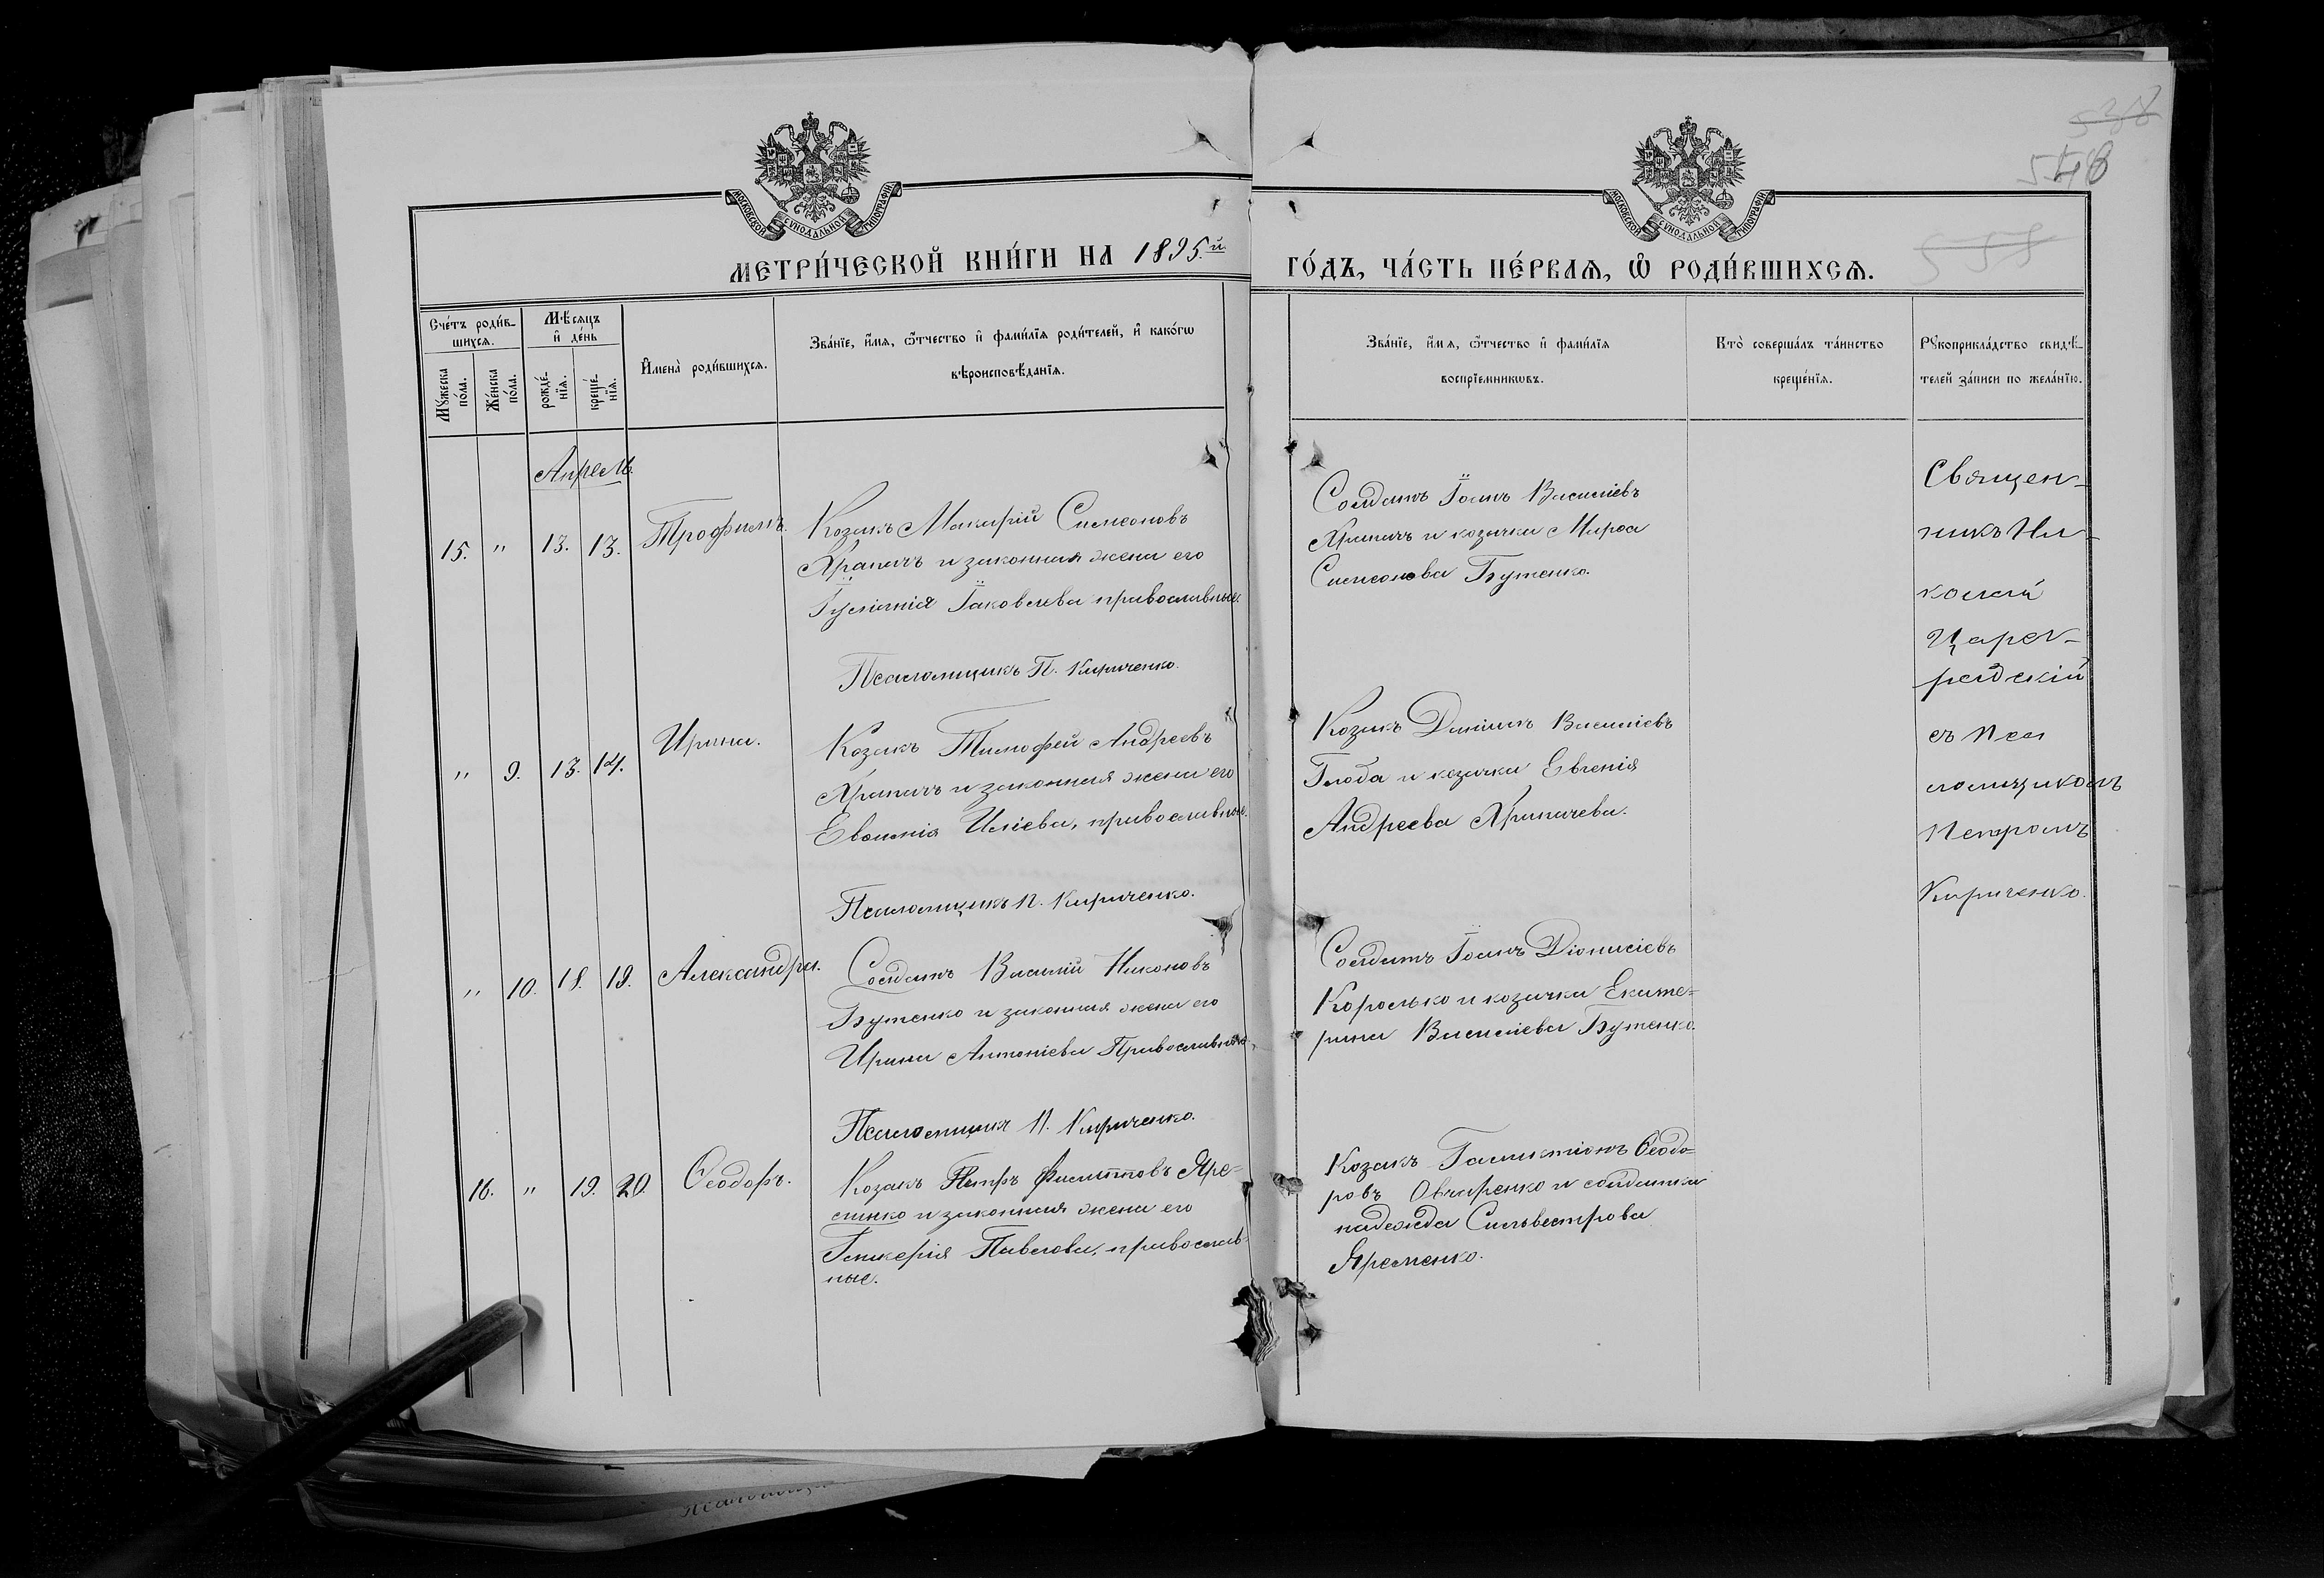 538
546
555
МОСКОВСКОЙ СѴНОДАЛЬНОЙ ТИПОГРАФІИ
МОСКОВСКОЙ СѴНОДАЛЬНОЙ ТИПОГРАФІИ
МЕТРИ́ЧЕСКОЙ КНИ́ГИ НА 1895.й ГО́ДЪ, ЧА́СТЬ ПЕ́РВАЯ, Ѿ РОДИ́ВШИХСѦ.
Сче́тъ роди́в-
шихсѧ.
Мꙋ́жеска по́ла.
Же́нска по́ла.
Мѣ́сяцъ
и҆ де́нь
рожде́-нїѧ.
креще́-нїѧ.
И҆мена̀ роди́вшихсѧ.
Зва́нїе, и҆́мѧ, ѻ҆́тчество и҆ фами́лїѧ роди́телей, и҆ како́гѡ
вѣроисповѣ́данїѧ.
Зва́нїе, и҆́мѧ, ѻ҆́тчество и҆ фами́лїѧ
воспрїемникѡвъ.
Кто̀ соверша́лъ та́инство
креще́нїѧ.
Рꙋкоприкла́дство свидѣ́-
телей за́писи по жела́нїю.
Апрель.
15. " 13. 13. Трофимъ.
Козакъ Макарій Симеоновъ
Храпачъ и законная жена его
Іуліанія Іаковлева православные.
Псаломщикъ П. Кириченко.
Солдатъ Іоанъ Василіевъ
Храпачъ и козачка Марѳа
Симеонова Бутенко.
" 9. 13. 14. Ирина.
Козакъ Тимофей Андреевъ
Храпачъ и законная жена его
Евѳимія Иліева, православные.
Псаломщикъ П. Кириченко.
Козакъ Даніилъ Василіевъ
Глоба и козачка Евгенія
Андреева Храпачева.
" 10. 18. 19. Александра.
Солдатъ Василій Никоновъ
Бутенко и законная жена его
Ирина Антоніева Православные.
Псаломщикъ П. Кириченко.
Солдатъ Іоанъ Діонисіевъ
Королько и козачка Екате=
рина Василіева Бутенко.
16. " 19. 20. Ѳеодоръ.
Козакъ Петръ Филипповъ Яре=
менко и законная жена его
Гликерія Павлова, православ-
ные.
Козакъ Галактіонъ Ѳеодо=
ровъ Овчаренко и солдатка
надежда Сильвестрова
Яременко.
Священ-
никъ Ни-
колай
Царег-
радскій
съ Пса
ломщикомъ
Петромъ
Кириченко.